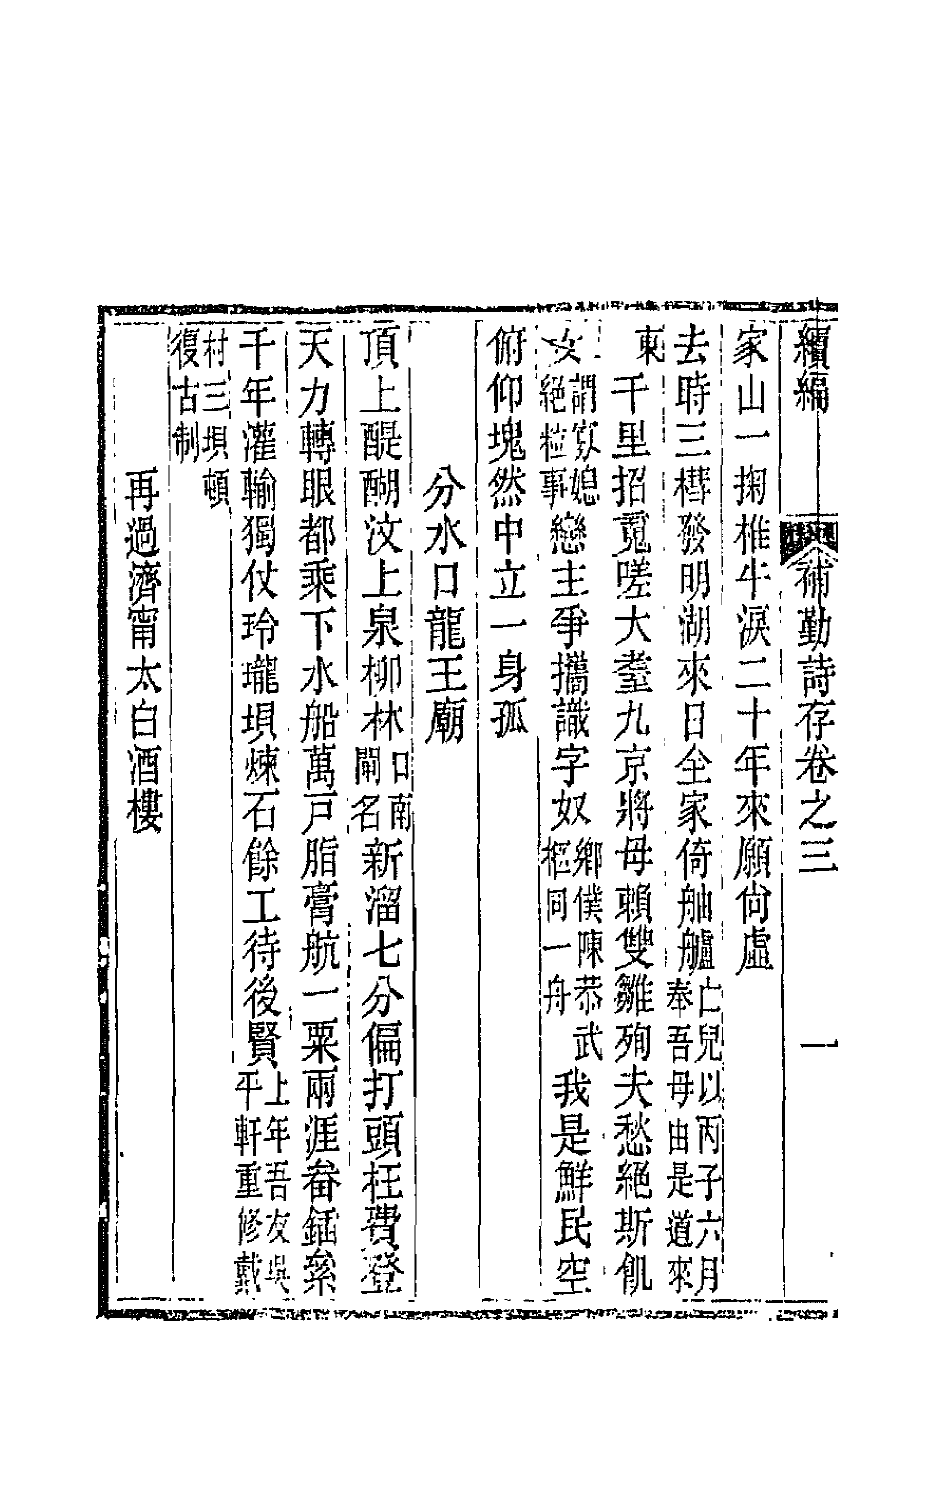 續編 補勤詩存卷之三 一
家山一掬椎牛淚二十年來願尙虛
去時三檥發明湖來日全家倚舳艫亡兒以丙子六月奉吾母由是道來
東千里招䰟嗟大耋九京將母賴雙雛殉夫愁絕斯飢
女謂寡媳絕粒事戀主爭攜識字奴鄉僕陳恭武柩同一舟我是鮮民空
俯仰塊然中立一身孤
分水口龍王廟
頂上醍醐汶上泉柳林口南閘名新溜七分偏打頭枉費登
天力轉眼都乘下水船萬戶脂膏航一粟兩涯畚鍤絫
千年灌輸獨仗玲瓏壩煉石餘工待後賢上年吾友吳平軒重修戴
村三壩頓復古制
再過濟甯太白酒樓